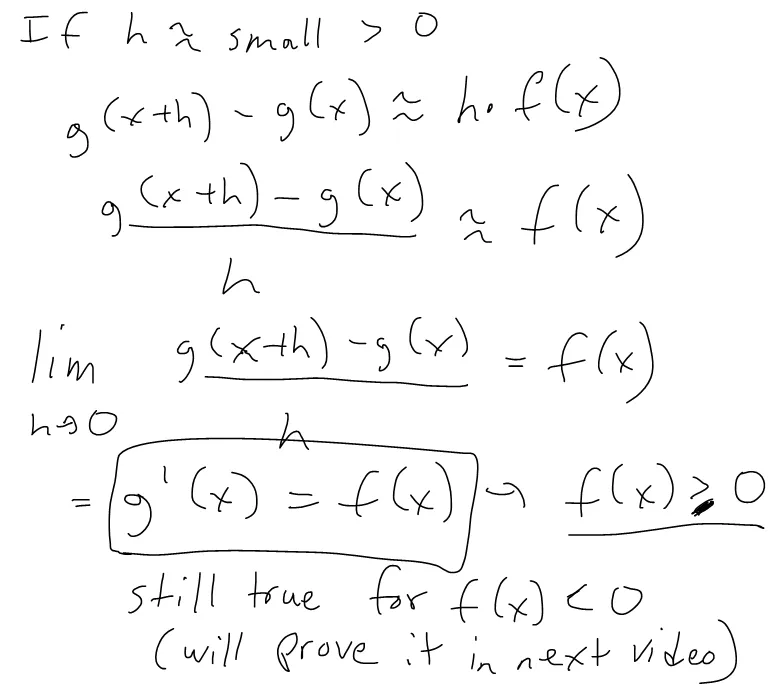 If h ≈ small > 0
g(x+h) - g(x) ≈ h · f(x)
g(x+h) - g(x) ≈ f(x)
h
lim g(x+h) - g(x) = f(x)
h→0 h
= g'(x) = f(x) → f(x) ≥ 0
still true for f(x) < 0
(will prove it in next video)